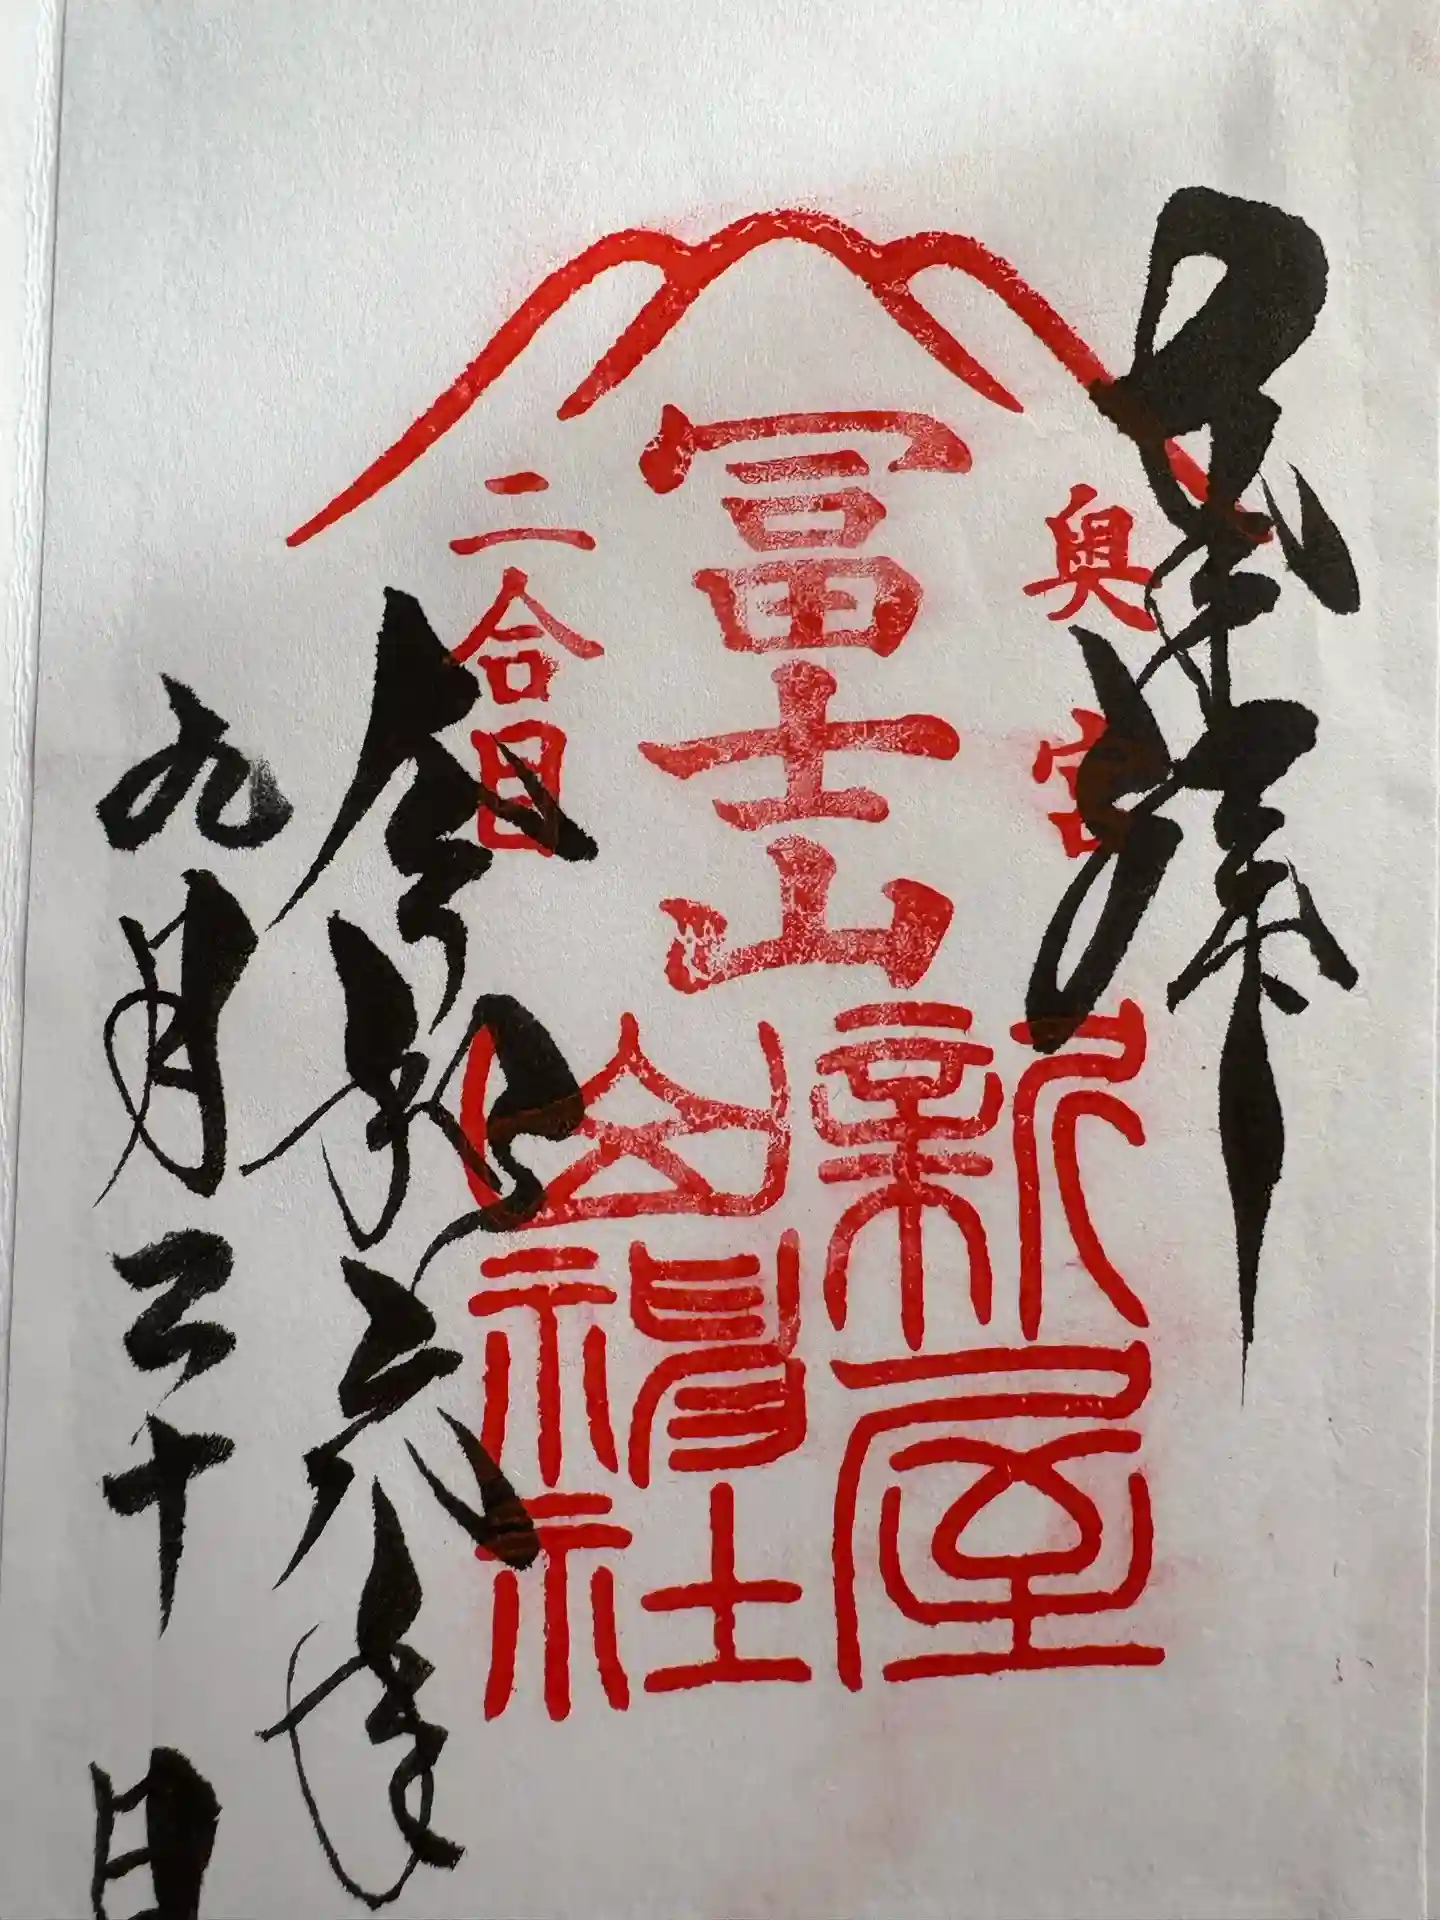 拝
奥宮
冨士山
二合目
新屋
山神社
令和六年
九月三十日